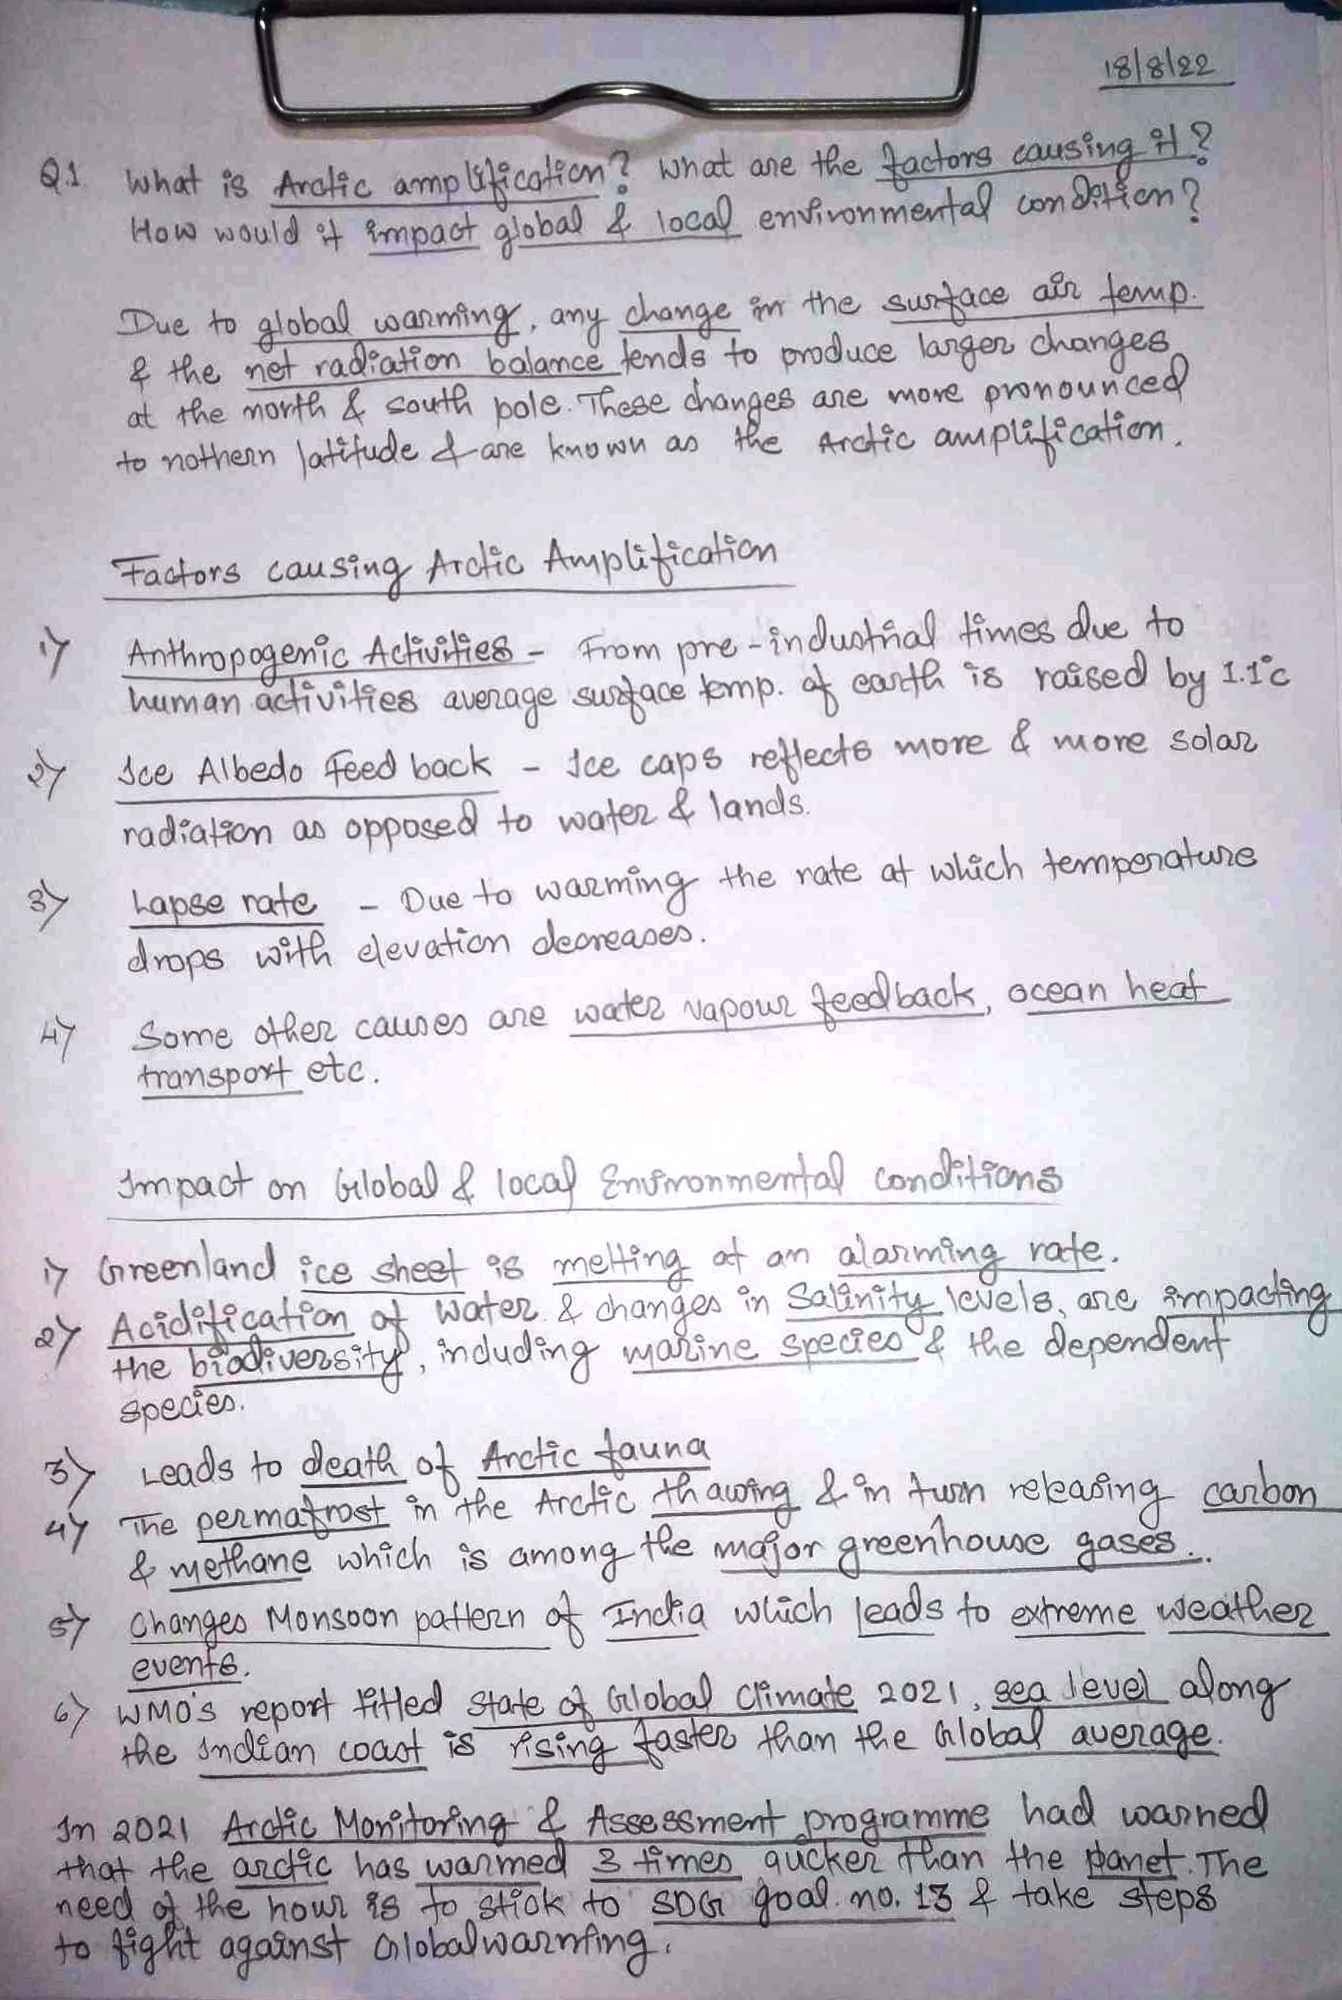 18/8/22
Q.1 What is Arctic amplification? What are the factors causing it?
How would it impact global & local environmental condition?
Due to global warming, any change in the surface air temp.
& the net radiation balance tends to produce larger changes
at the north & south pole. These changes are more pronounced
to nothern latitude & are known as the Arctic amplification.
Factors causing Arctic Amplification
1) Anthropogenic Activities - From pre-industrial times due to
human activities average surface temp. of earth is raised by 1.1°c
2) Ice Albedo Feed back - Ice caps reflects more & more solar
radiation as opposed to water & lands.
3) Lapse rate - Due to warming the rate at which temperature
drops with elevation decreases.
4) Some other causes are water vapour feedback, ocean heat
transport etc.
Impact on Global & local Environmental conditions
1) Greenland ice sheet is melting at an alarming rate.
2) Acidification of water & changes in Salinity levels, are impacting
the biodiversity, including marine species & the dependent
species.
3) Leads to death of Arctic fauna
4) The permafrost in the Arctic thawing & in turn releasing carbon
& methane which is among the major greenhouse gases..
5) Changes Monsoon pattern of India which leads to extreme weather
events.
6) WMO's report titled State of Global Climate 2021, sea level along
the Indian coast is rising faster than the Global average.
In 2021 Arctic Monitoring & Assessment programme had warned
that the arctic has warmed 3 times qucker than the panet. The
need of the hour is to stick to SDG goal no. 13 & take steps
to fight against Global warnfing.